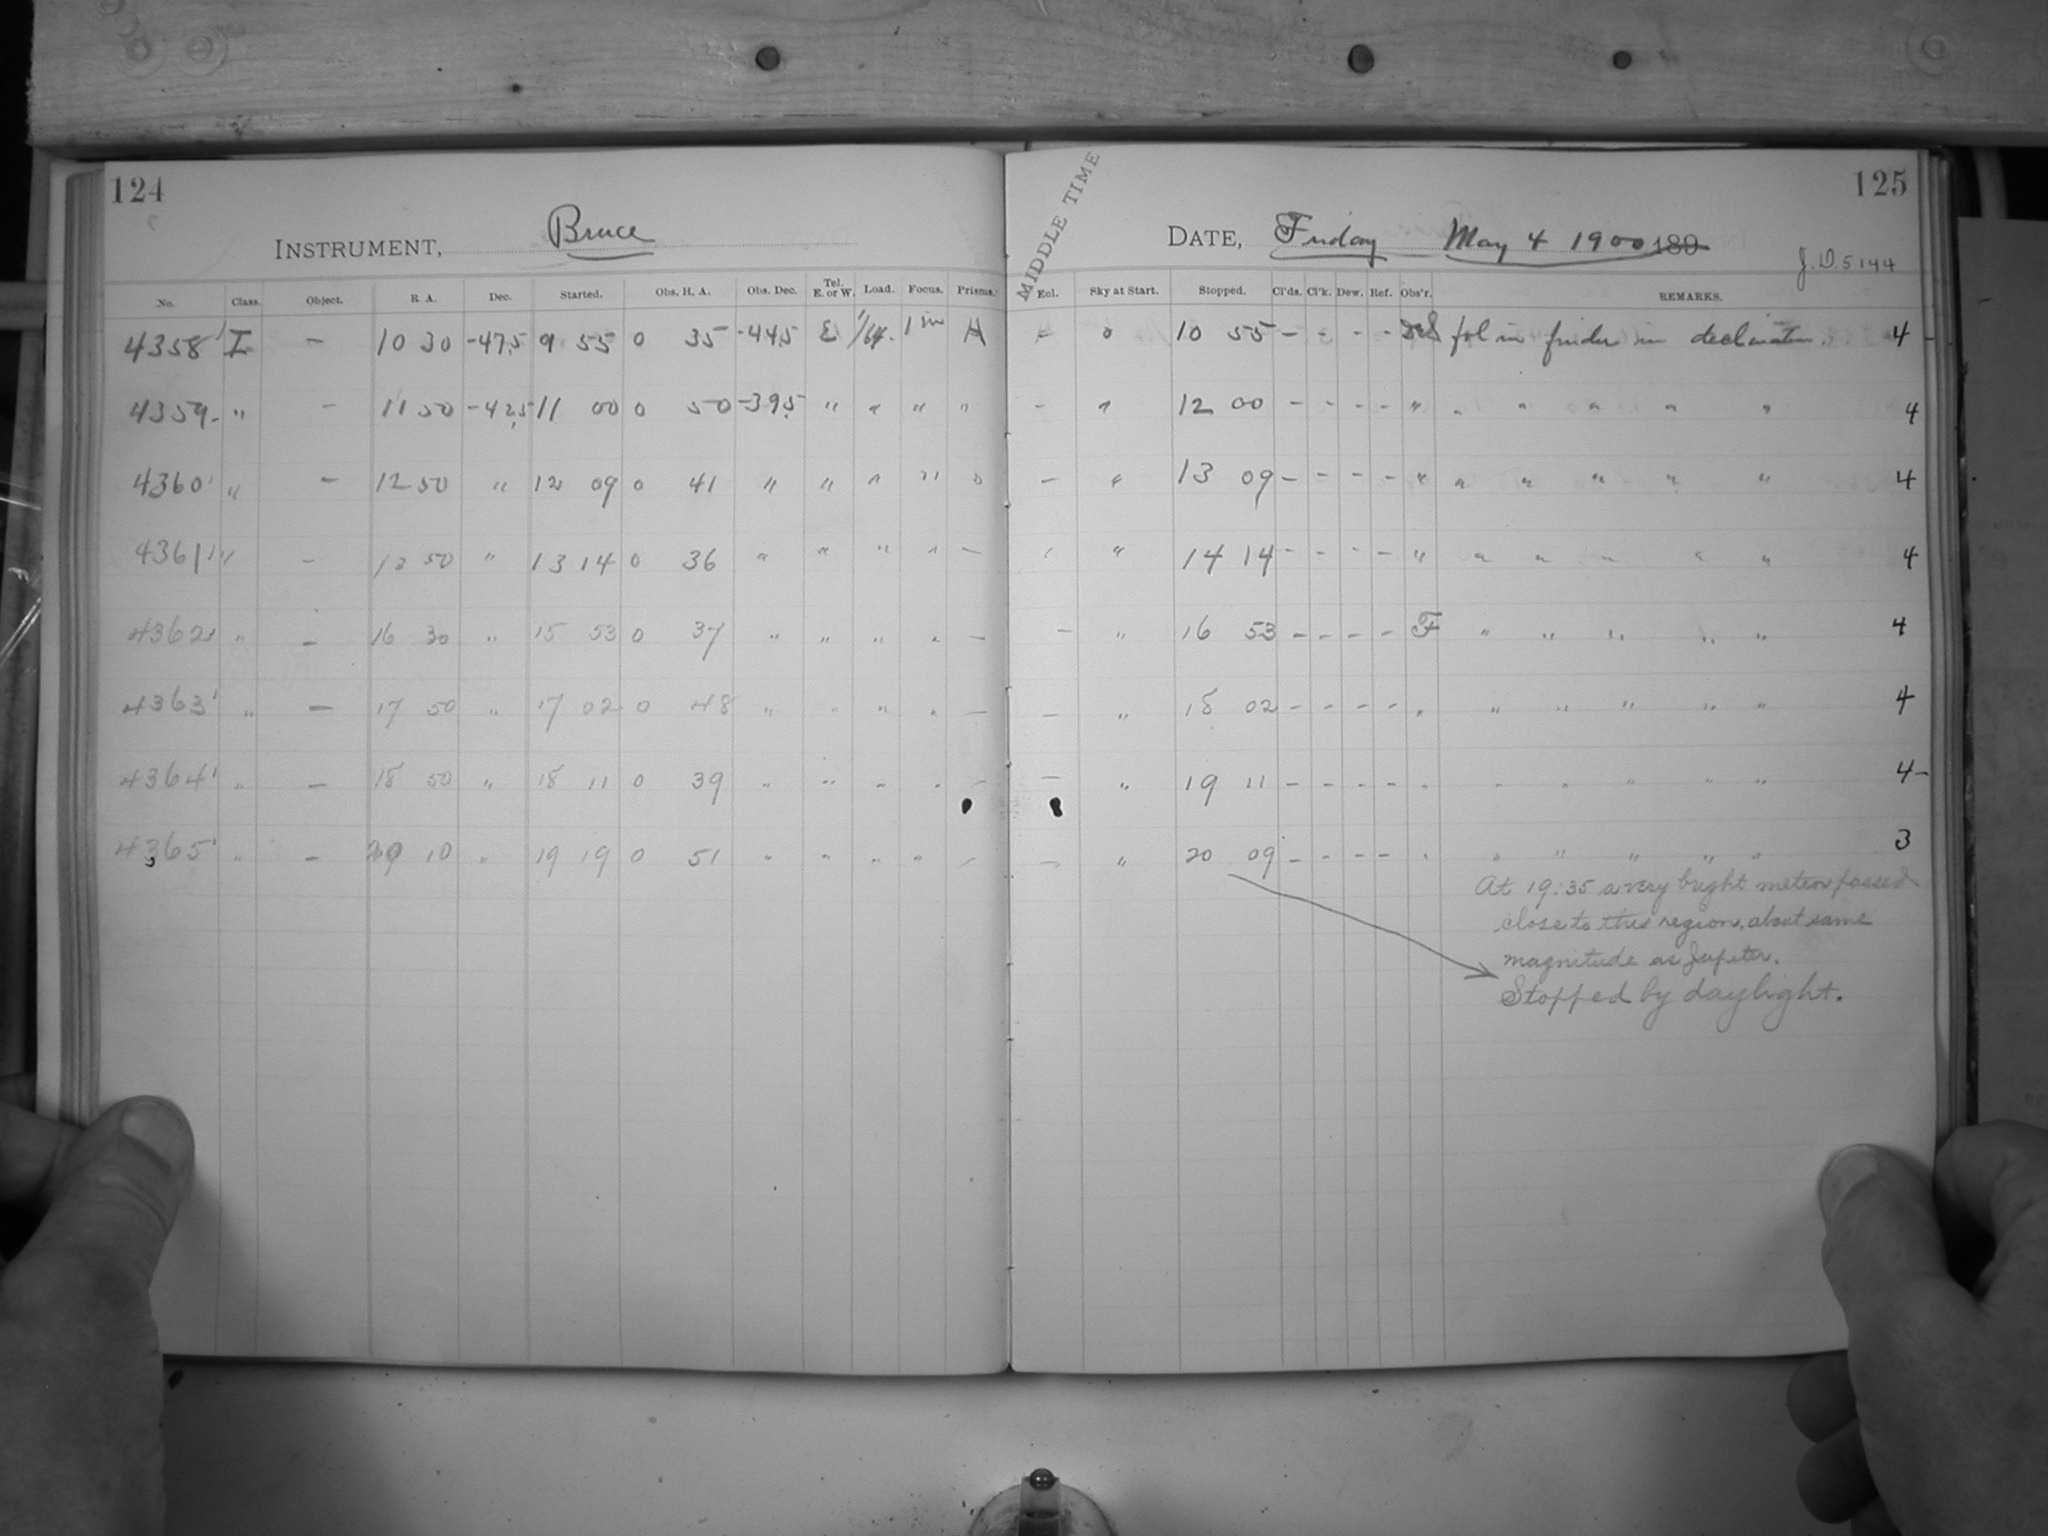 124
INSTRUMENT, Bruce
No. Class. Object. R. A. Dec. Started. Obs. H. A. Obs. Dec. Tel. E. or W. Load. Focus. Prisms.
4358' I – 10 30 -47.5 9 55 0 35 -44.5 E 1/64. 1 in A
4359- " – 11 50 -42.5 11 00 0 50 -39.5 " " " "
4360' " – 12 50 " 12 09 0 41 " " " " "
4361' " – 13 50 " 13 14 0 36 " " " " –
4362' " – 16 30 " 15 53 0 37 " " " " –
4363' " – 17 50 " 17 02 0 48 " " " " –
4364' " – 18 50 " 18 11 0 39 " " " " –
4365' " – 10 " 19 19 0 51 " " " " –
MIDDLE TIME
125
DATE, Friday May 4 1900 189
J. D. 5144
Exl. Sky at Start. Stopped. Cl'ds. Cl'k. Dew. Ref. Obs'r. REMARKS.
– 0 10 55 – – – – fol in finder in declination. 4
– " 12 00 – – – – " " " " " " 4
– " 13 09 – – – – " " " " " " 4
" 14 14 – – – – " " " " " " 4
– " 16 53 – – – – F " " " " " 4
– " 18 02 – – – – " " " " " " 4
– " 19 11 – – – – " " " " " " 4
– " 20 09 – – – – " " " " " " 3
At 19:35 a very bright meteor passed
close to this region, about same
magnitude as Jupiter.
Stopped by daylight.